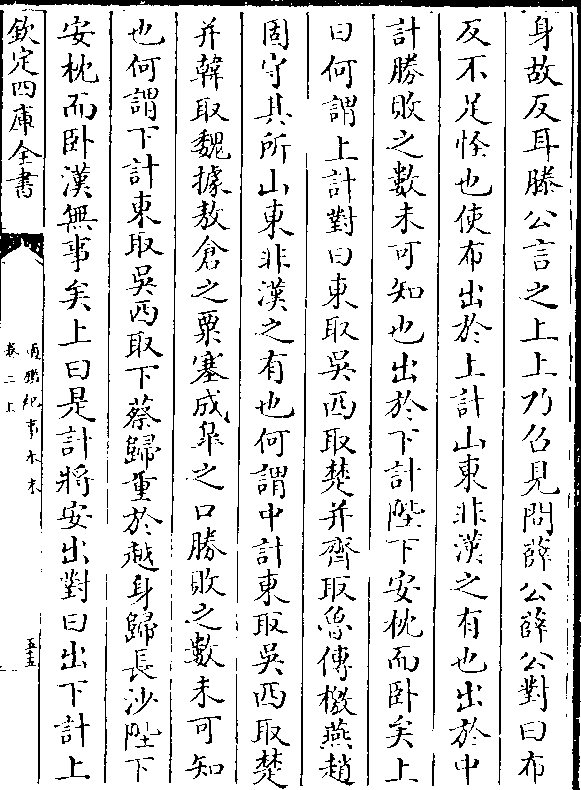 身故反耳滕公言之上上乃召見問薛公薛公對曰布
反不足怪也使布出於上計山東非漢之有也出於中
計勝敗之數未可知也出於下計陛下安枕而卧矣上
曰何謂上計對曰東取吳西取楚并齊取魯傳檄燕趙
固守其所山東非漢之有也何謂中計東取吳西取楚
并韓取魏據敖倉之粟塞成臯之口勝敗之數未可知
也何謂下計東取吳西取下蔡歸重於越身歸長沙陛下
安枕而卧漢無事矣上曰是計將安出對曰出下計上
欽定四庫全書
通鑑紀事本末
卷二上
五十五